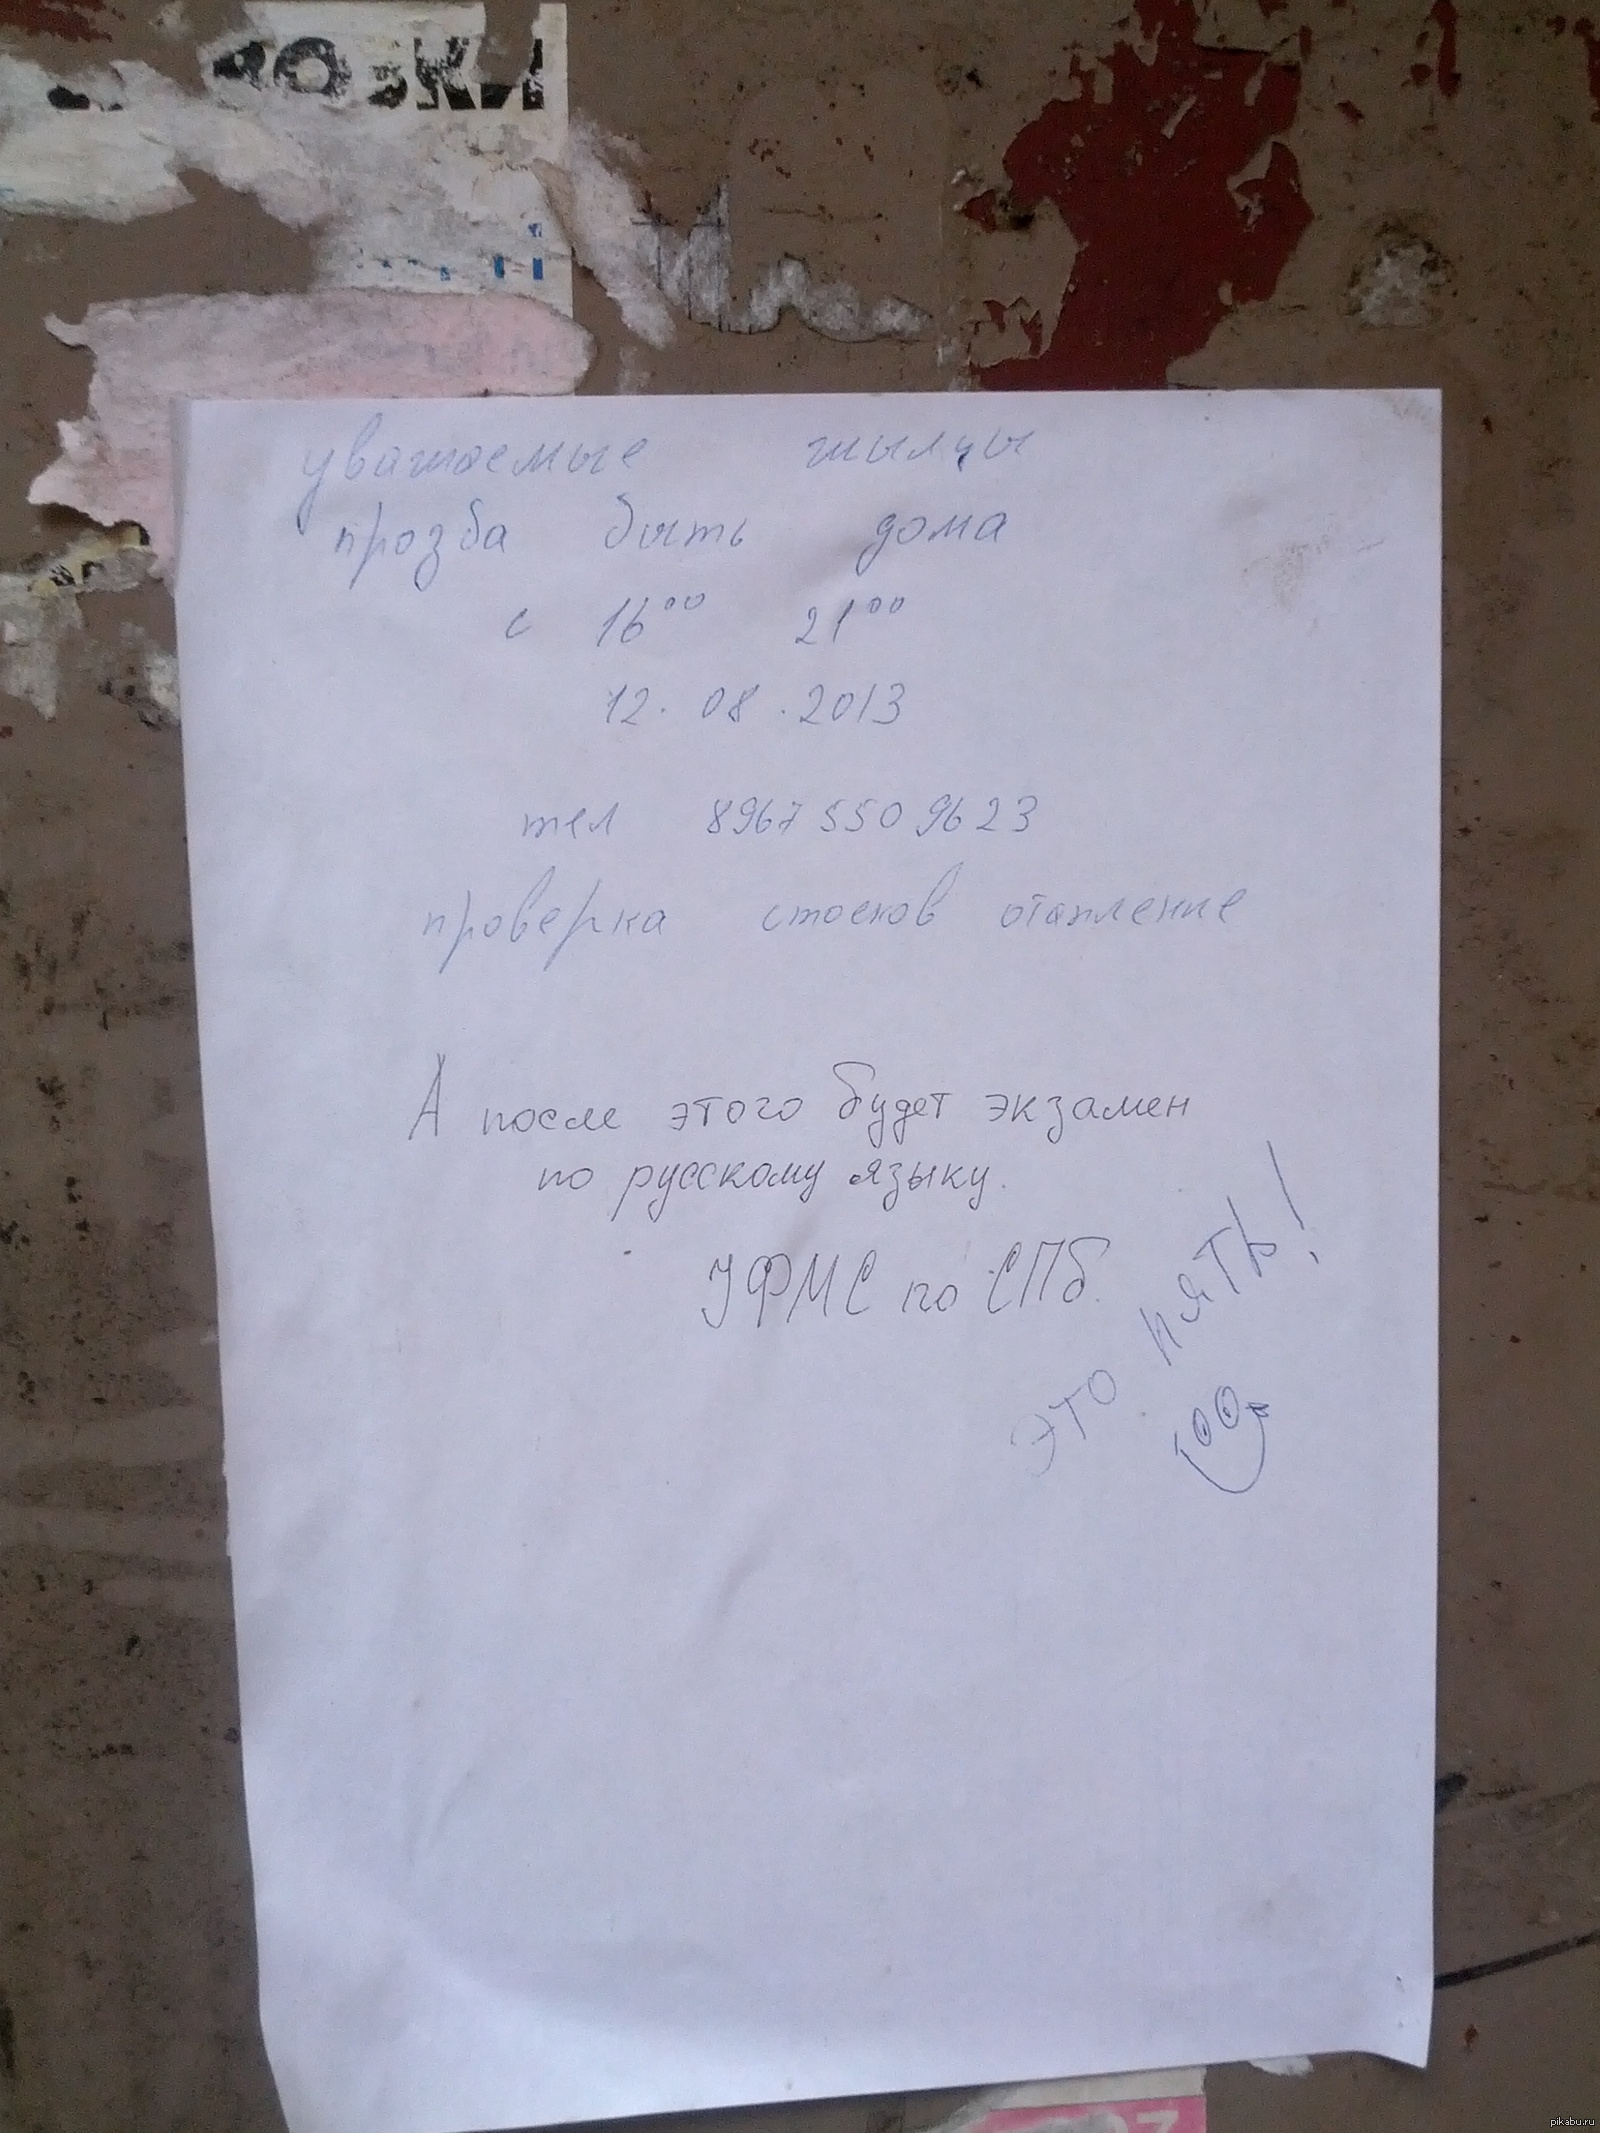 ОВКИ
уважаемые жылцы
прозба быть дома
с 16⁰⁰ 21⁰⁰
12.08.2013
тел 8967 550 96 23
проверка стоеков отапление
А после этого будет экзамен
по русскому языку.
УФМС по СПб.
ЭТО ПЯТЬ!
pikabu.ru